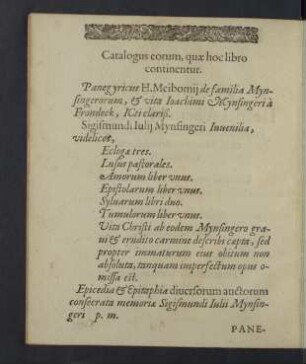 Catalogus eorum, quæ hoc libro
continentur.
Panegyricus H. Meibomij de familia Myn-
singerorum, & vita Ioachimi Mynsingeri à
Frondeck, ICti clariß.
Sigismundi Iulij Mynsingeri Iuuenilia,
videlicet,
Eclogæ tres.
Lusus pastorales.
Amorum liber vnus.
Epistolarum liber vnus.
Syluarum libri duo.
Tumulorum liber vnus.
Vita Christi ab eodem Mynsingero gra-
ui & erudito carmine describi cæpta, sed
propter immaturum eius obitum non
absoluta, tanquam imperfectum opus o-
missa est.
Epicedia & Epitaphia diuersorum auctorum
consecrata memoriæ Sigismundi Iulii Mynsin-
geri p. m.
PANE-